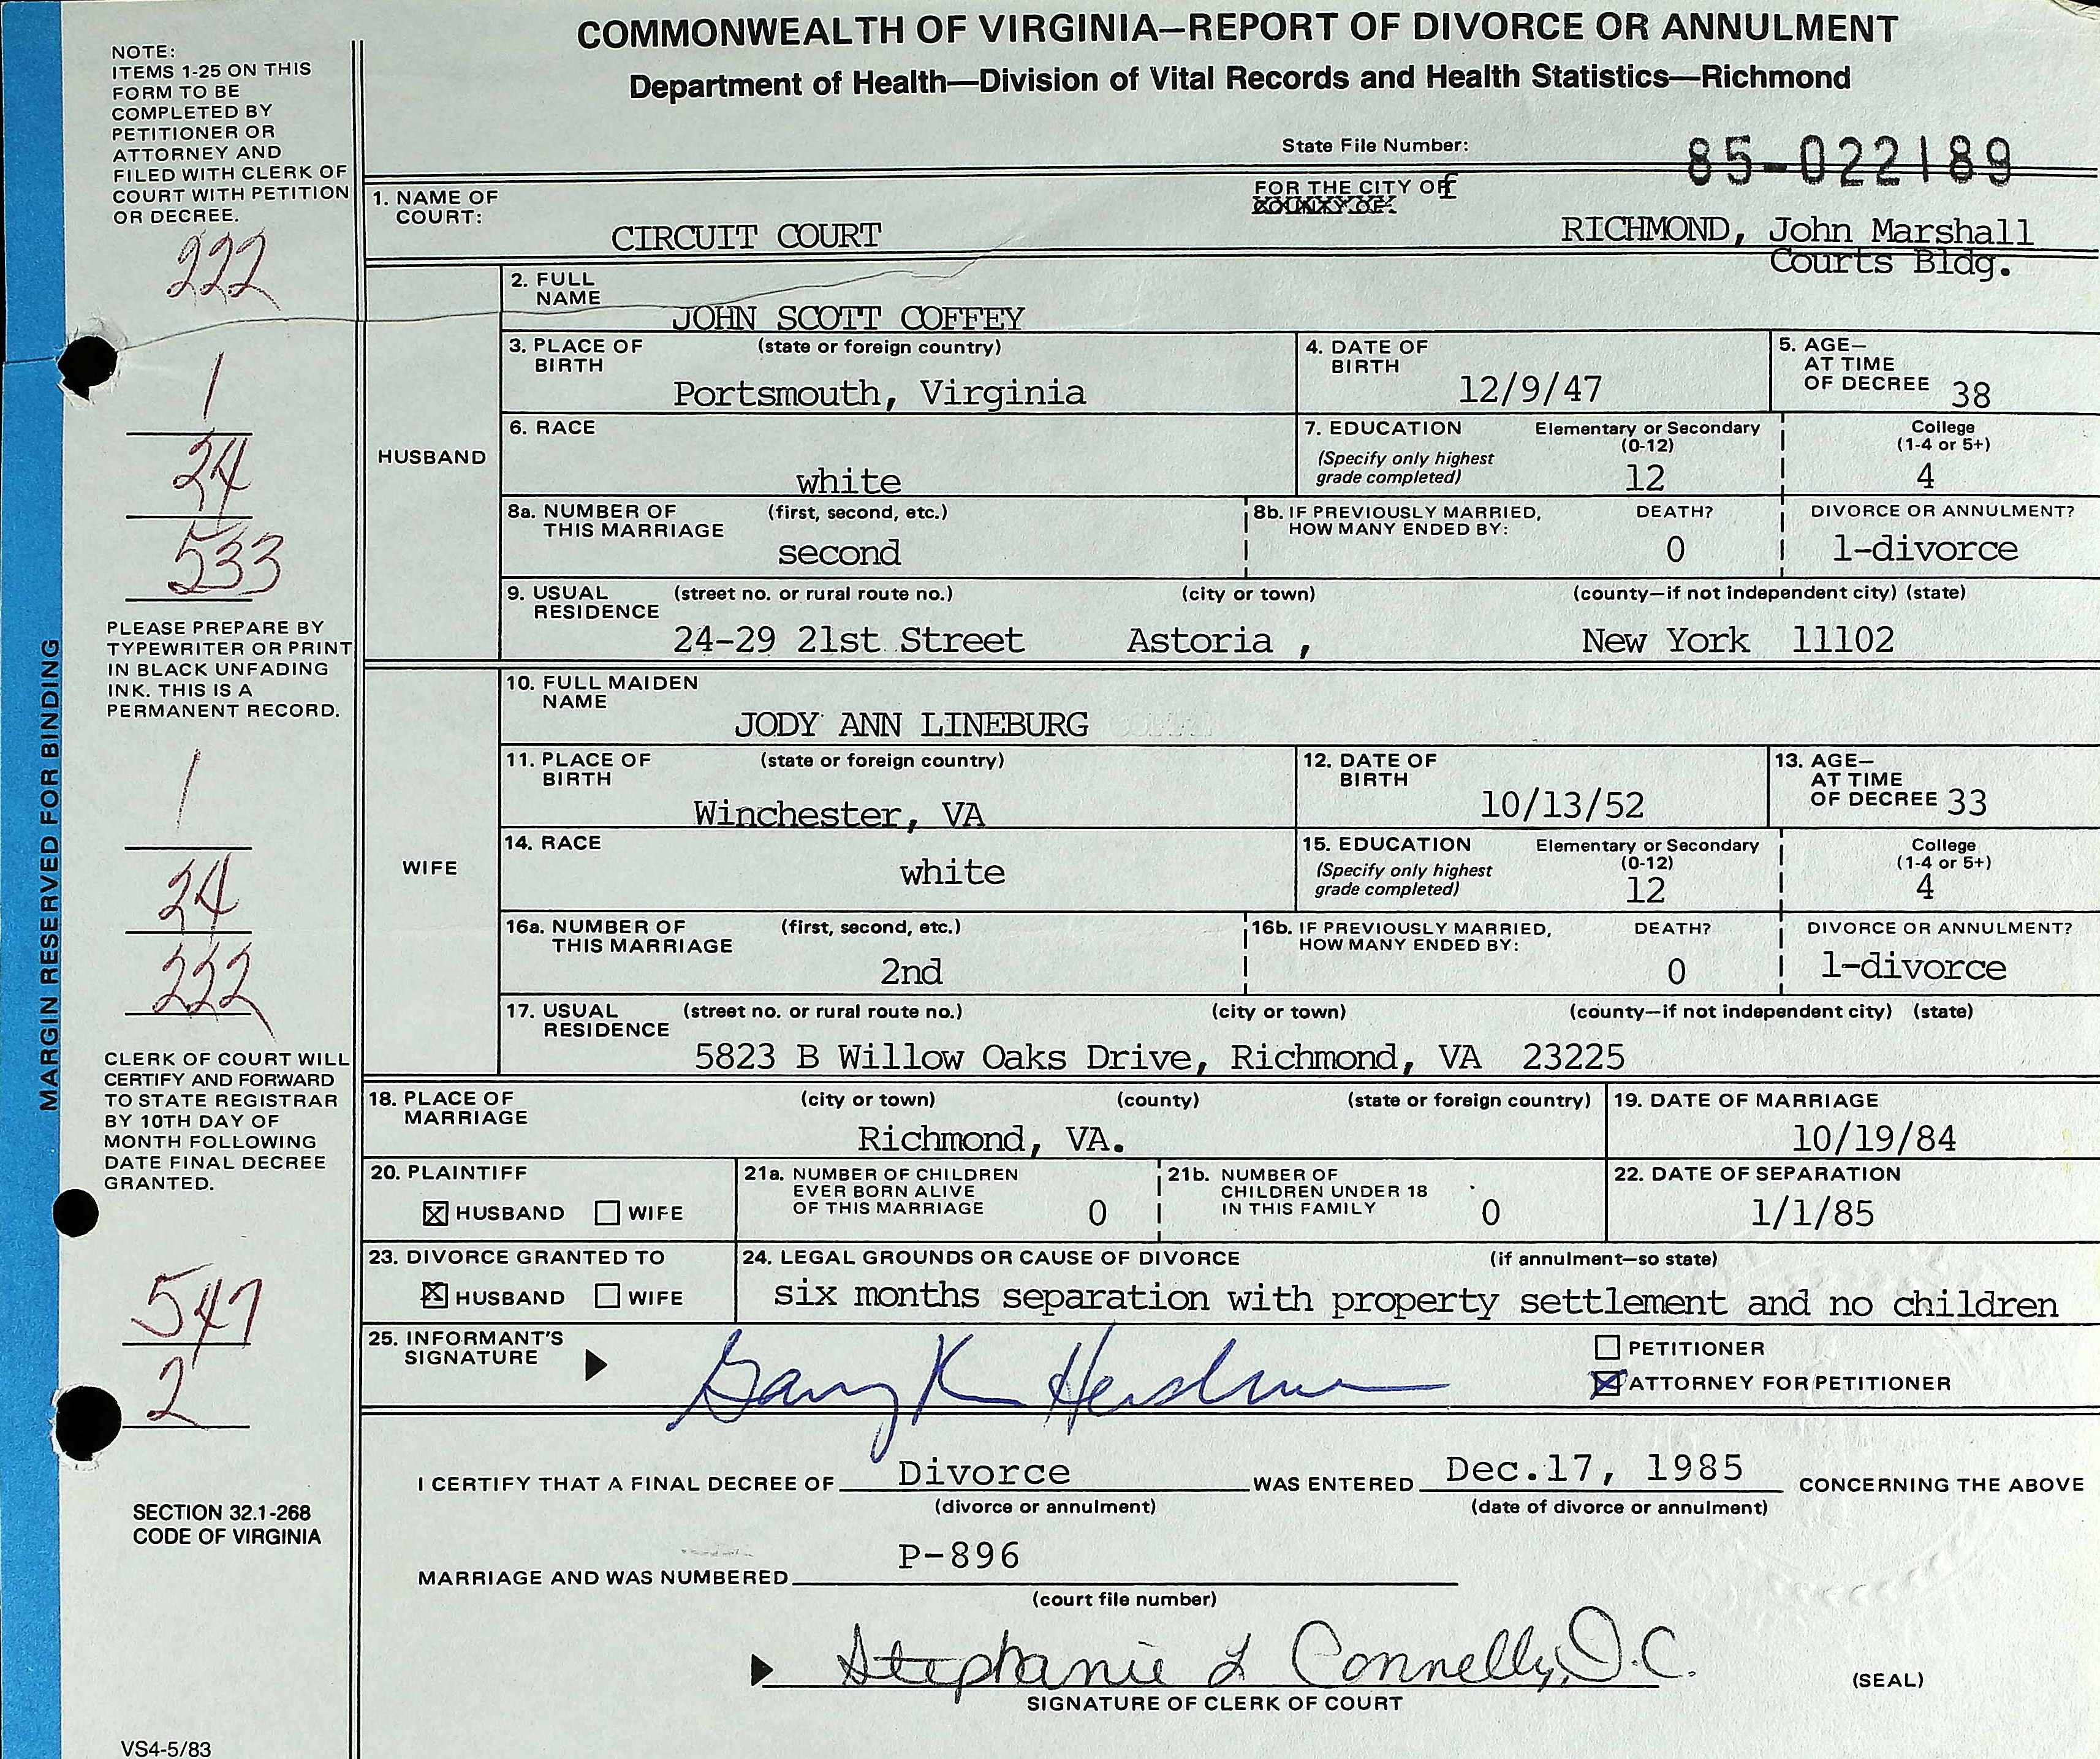 COMMONWEALTH OF VIRGINIA—REPORT OF DIVORCE OR ANNULMENT
Department of Health—Division of Vital Records and Health Statistics—Richmond
NOTE:
ITEMS 1-25 ON THIS
FORM TO BE
COMPLETED BY
PETITIONER OR
ATTORNEY AND
FILED WITH CLERK OF
COURT WITH PETITION
OR DECREE.
222
1
24
533
PLEASE PREPARE BY
TYPEWRITER OR PRINT
IN BLACK UNFADING
INK. THIS IS A
PERMANENT RECORD.
1
24
222
CLERK OF COURT WILL
CERTIFY AND FORWARD
TO STATE REGISTRAR
BY 10TH DAY OF
MONTH FOLLOWING
DATE FINAL DECREE
GRANTED.
547
2
SECTION 32.1-268
CODE OF VIRGINIA
VS4-5/83
MARGIN RESERVED FOR BINDING
State File Number: 85-022189
1. NAME OF COURT: CIRCUIT COURT
FOR THE CITY OF
COUNTY OF:
RICHMOND, John Marshall
Courts Bldg.
HUSBAND
2. FULL NAME
JOHN SCOTT COFFEY
3. PLACE OF BIRTH (state or foreign country)
Portsmouth, Virginia
4. DATE OF BIRTH
12/9/47
5. AGE—AT TIME OF DECREE 38
6. RACE
white
7. EDUCATION (Specify only highest grade completed)
Elementary or Secondary (0-12)
12
College (1-4 or 5+)
4
8a. NUMBER OF THIS MARRIAGE (first, second, etc.)
second
8b. IF PREVIOUSLY MARRIED, HOW MANY ENDED BY:
DEATH?
0
DIVORCE OR ANNULMENT?
1-divorce
9. USUAL RESIDENCE (street no. or rural route no.) (city or town) (county—if not independent city) (state)
24-29 21st Street Astoria , New York 11102
WIFE
10. FULL MAIDEN NAME
JODY ANN LINEBURG
11. PLACE OF BIRTH (state or foreign country)
Winchester, VA
12. DATE OF BIRTH
10/13/52
13. AGE—AT TIME OF DECREE 33
14. RACE
white
15. EDUCATION (Specify only highest grade completed)
Elementary or Secondary (0-12)
12
College (1-4 or 5+)
4
16a. NUMBER OF THIS MARRIAGE (first, second, etc.)
2nd
16b. IF PREVIOUSLY MARRIED, HOW MANY ENDED BY:
DEATH?
0
DIVORCE OR ANNULMENT?
1-divorce
17. USUAL RESIDENCE (street no. or rural route no.) (city or town) (county—if not independent city) (state)
5823 B Willow Oaks Drive, Richmond, VA 23225
18. PLACE OF MARRIAGE (city or town) (county) (state or foreign country)
Richmond, VA.
19. DATE OF MARRIAGE
10/19/84
20. PLAINTIFF
☒ HUSBAND ☐ WIFE
21a. NUMBER OF CHILDREN EVER BORN ALIVE OF THIS MARRIAGE 0
21b. NUMBER OF CHILDREN UNDER 18 IN THIS FAMILY 0
22. DATE OF SEPARATION
1/1/85
23. DIVORCE GRANTED TO
☒ HUSBAND ☐ WIFE
24. LEGAL GROUNDS OR CAUSE OF DIVORCE (if annulment—so state)
six months separation with property settlement and no children
25. INFORMANT'S SIGNATURE
Gary K
☐ PETITIONER
☒ ATTORNEY FOR PETITIONER
I CERTIFY THAT A FINAL DECREE OF Divorce WAS ENTERED Dec.17, 1985 CONCERNING THE ABOVE
(divorce or annulment) (date of divorce or annulment)
MARRIAGE AND WAS NUMBERED P-896
(court file number)
Stephanie L Connelly, D.C.
SIGNATURE OF CLERK OF COURT
(SEAL)